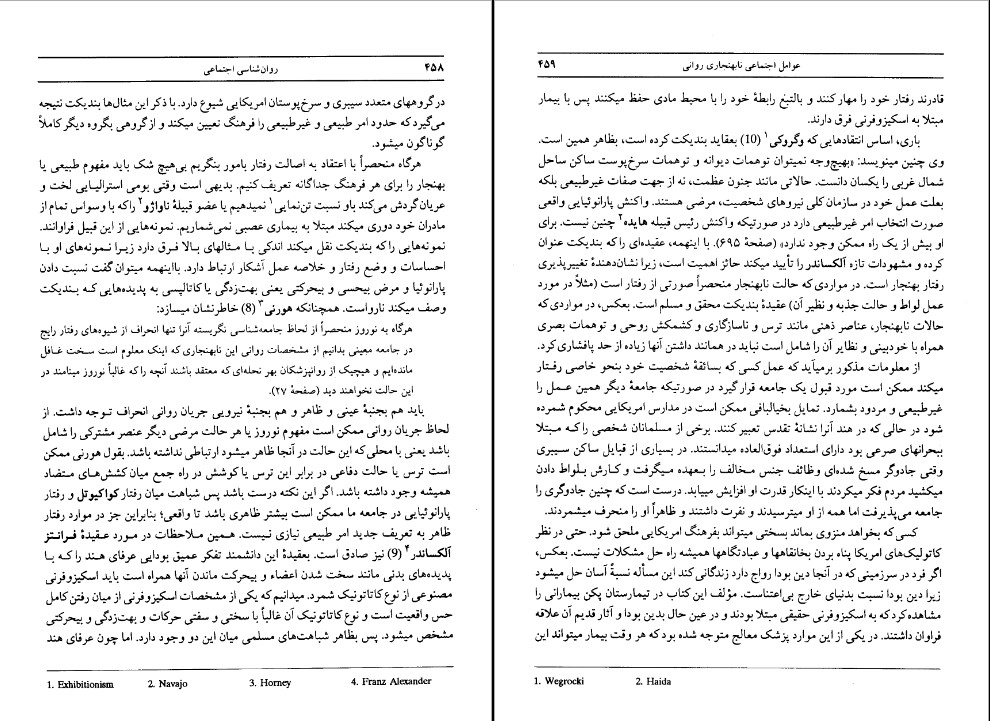 ۴۵۸ روان‌شناسی اجتماعی
درگروههای متعدد سیبری و سرخ‌پوستان امریکایی شیوع دارد. با ذکر این مثال‌ها بندیکت نتیجه
می‌گیرد که حدود امر طبیعی و غیرطبیعی را فرهنگ تعیین میکند و از گروهی بگروه دیگر کاملاً
گوناگون میشود.
هرگاه منحصراً با اعتقاد به اصالت رفتار بامور بنگریم بی‌هیچ شک باید مفهوم طبیعی یا
بهنجار را برای هر فرهنگ جداگانه تعریف کنیم. بدیهی است وقتی بومی استرالیایی لخت و
عریان گردش می‌کند باو نسبت تن‌نمایی۱ نمیدهیم یا عضو قبیلهٔ ناواژو۲ را که با وسواس تمام از
مادران خود دوری میکند مبتلا به بیماری عصبی نمی‌شماریم. نمونه‌هایی از این قبیل فراوانند.
نمونه‌هایی را که بندیکت نقل میکند اندکی با مثالهای بالا فرق دارد زیرا نمونه‌های او با
احساسات و وضع رفتار و خلاصه عمل آشکار ارتباط دارد. بااینهمه میتوان گفت نسبت دادن
پارانوئیا و مرض بیحسی و بیحرکتی یعنی بهت‌زدگی یا کاتالپسی به پدیده‌هایی که بندیکت
وصف میکند نارواست. همچنانکه هورنی۳ (8) خاطرنشان میسازد:
هرگاه به نوروز منحصراً از لحاظ جامعه‌شناسی نگریسته آنرا تنها انحراف از شیوه‌های رفتار رایج
در جامعه معینی بدانیم از مشخصات روانی این نابهنجاری که اینک معلوم است سخت غافل
مانده‌ایم و هیچیک از روانپزشکان بهر نحله‌ای که معتقد باشند آنچه را که غالباً نوروز مینامند در
این حالت نخواهند دید (صفحهٔ ۲۷).
باید هم بجنبهٔ عینی و ظاهر و هم بجنبهٔ نیرویی جریان روانی انحراف توجه داشت. از
لحاظ جریان روانی ممکن است مفهوم نوروز یا هر حالت مرضی دیگر عنصر مشترکی را شامل
باشد یعنی با محلی که این حالت در آنجا ظاهر میشود ارتباطی نداشته باشد. بقول هورنی ممکن
است ترس یا حالت دفاعی در برابر این ترس یا کوشش در راه جمع میان کشش‌های متضاد
همیشه وجود داشته باشد. اگر این نکته درست باشد پس شباهت میان رفتار کواکیوتل و رفتار
پارانوئیایی در جامعه ما ممکن است بیشتر ظاهری باشد تا واقعی؛ بنابراین جز در موارد رفتار
ظاهر به تعریف جدید امر طبیعی نیازی نیست. همین ملاحظات در مورد عقیدهٔ فرانتز
آلکساندر۴ (9) نیز صادق است. بعقیدهٔ این دانشمند تفکر عمیق بودایی عرفای هند را که با
پدیده‌های بدنی مانند سخت شدن اعضاء و بیحرکت ماندن آنها همراه است باید اسکیزوفرنی
مصنوعی از نوع کاتاتونیک شمرد. میدانیم که یکی از مشخصات اسکیزوفرنی از میان رفتن کامل
حس واقعیت است و نوع کاتاتونیک آن غالباً با سختی و سفتی حرکات و بهت‌زدگی و بیحرکتی
مشخص میشود. پس بظاهر شباهت‌های مسلمی میان این دو وجود دارد. اما چون عرفای هند
1. Exhibitionism 2. Navajo 3. Horney 4. Franz Alexander
عوامل اجتماعی نابهنجاری روانی ۴۵۹
قادرند رفتار خود را مهار کنند و بالتبع رابطهٔ خود را با محیط مادی حفظ میکنند پس با بیمار
مبتلا به اسکیزوفرنی فرق دارند.
باری، اساس انتقادهایی که وگروکی۱ (10) بعقاید بندیکت کرده است، بظاهر همین است.
وی چنین مینویسد: «بهیچ‌وجه نمیتوان توهمات دیوانه و توهمات سرخ‌پوست ساکن ساحل
شمال غربی را یکسان دانست. حالاتی مانند جنون عظمت، نه از جهت صفات غیرطبیعی بلکه
بعلت عمل خود در سازمان کلی نیروهای شخصیت، مرضی هستند. واکنش پارانوئیایی واقعی
صورت انتخاب امر غیرطبیعی دارد در صورتیکه واکنش رئیس قبیله هایده۲ چنین نیست. برای
او بیش از یک راه ممکن وجود ندارد» (صفحهٔ ۶۹۵). با اینهمه، عقیده‌ای را که بندیکت عنوان
کرده و مشهودات تازه آلکساندر را تأیید میکند حائز اهمیت است، زیرا نشان‌دهندهٔ تغییرپذیری
رفتار بهنجار است. در مواردی که حالت نابهنجار منحصراً صورتی از رفتار است (مثلاً در مورد
عمل لواط و حالت جذبه و نظیر آن) عقیدهٔ بندیکت محقق و مسلم است. بعکس، در مواردی که
حالات نابهنجار، عناصر ذهنی مانند ترس و ناسازگاری و کشمکش روحی و توهمات بصری
همراه با خودبینی و نظایر آن را شامل است نباید در همانند داشتن آنها زیاده از حد پافشاری کرد.
از معلومات مذکور برمیآید که عمل کسی که بسائقهٔ شخصیت خود بنحو خاصی رفتار
میکند ممکن است مورد قبول یک جامعه قرار گیرد در صورتیکه جامعهٔ دیگر همین عمل را
غیرطبیعی و مردود بشمارد. تمایل بخیالبافی ممکن است در مدارس امریکایی محکوم شمرده
شود در حالی که در هند آنرا نشانهٔ تقدس تعبیر کنند. برخی از مسلمانان شخصی را که مبتلا
ببحرانهای صرعی بود دارای استعداد فوق‌العاده میدانستند. در بسیاری از قبایل ساکن سیبری
وقتی جادوگر مسخ شده‌ای وظائف جنس مخالف را بعهده میگرفت و کارش بلواط دادن
میکشید مردم فکر میکردند با اینکار قدرت او افزایش مییابد. درست است که چنین جادوگری را
جامعه می‌پذیرفت اما همه از او میترسیدند و نفرت داشتند و ظاهراً او را منحرف میشمردند.
کسی که بخواهد منزوی بماند بسختی میتواند بفرهنگ امریکایی ملحق شود. حتی در نظر
کاتولیک‌های امریکا پناه بردن بخانقاهها و عبادتگاهها همیشه راه حل مشکلات نیست. بعکس،
اگر فرد در سرزمینی که در آنجا دین بودا رواج دارد زندگانی کند این مسأله نسبةً آسان حل میشود
زیرا دین بودا نسبت بدنیای خارج بی‌اعتناست. مؤلف این کتاب در تیمارستان پکن بیمارانی را
مشاهده کرد که به اسکیزوفرنی حقیقی مبتلا بودند و در عین حال بدین بودا و آثار قدیم آن علاقه
فراوان داشتند. در یکی از این موارد پزشک معالج متوجه شده بود که هر وقت بیمار میتواند این
1. Wegrocki 2. Haida